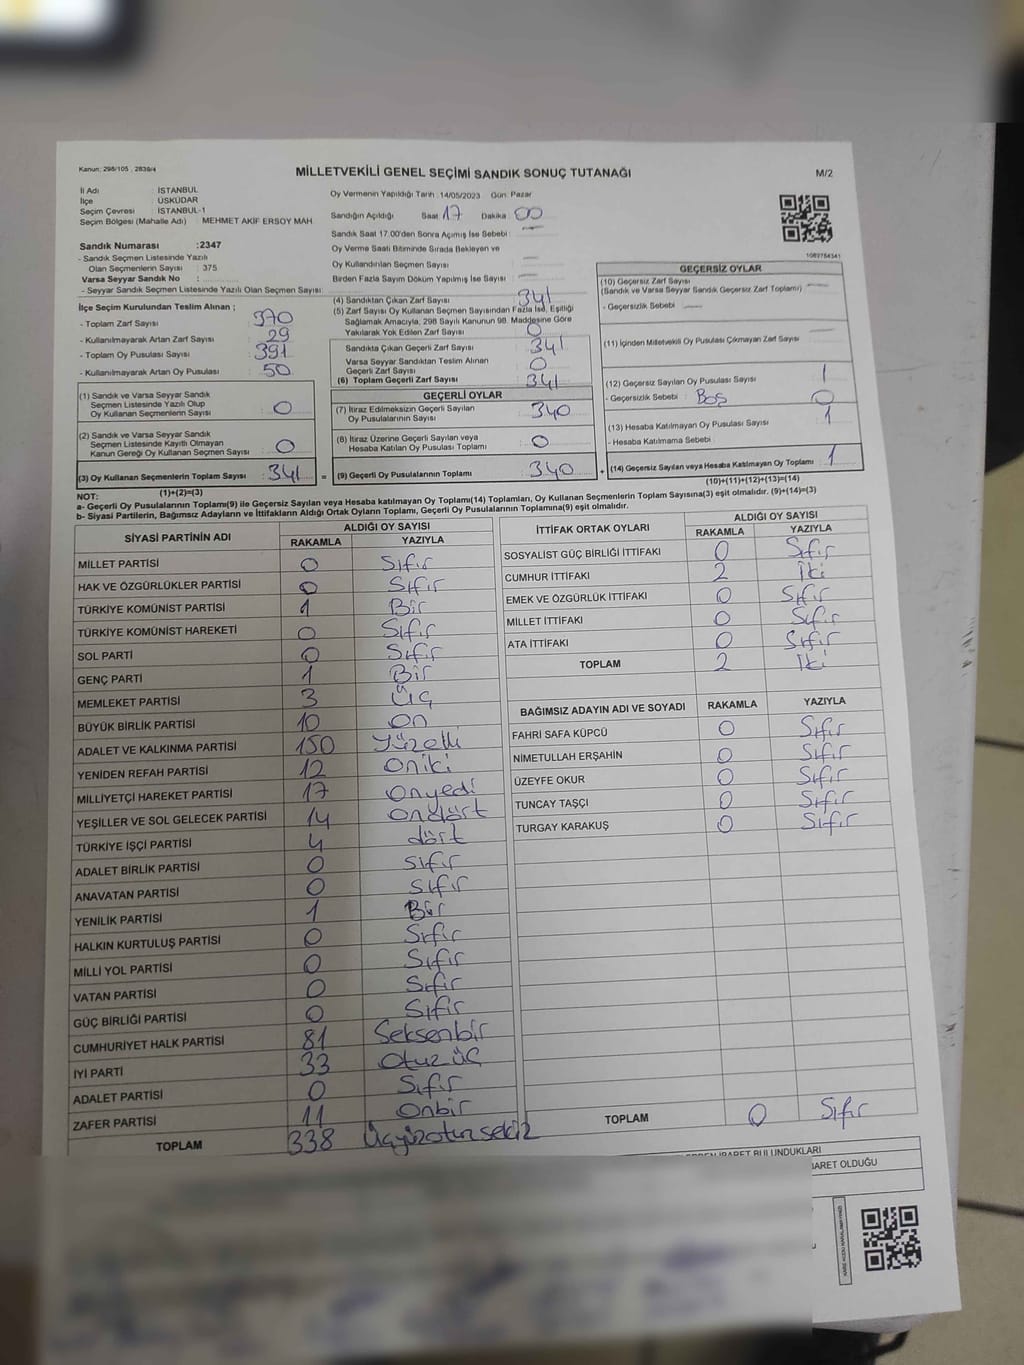 Kanun: 298/105 , 2839/4
MİLLETVEKİLİ GENEL SEÇİMİ SANDIK SONUÇ TUTANAĞI
M/2
İl Adı : İSTANBUL
İlçe : ÜSKÜDAR
Seçim Çevresi : İSTANBUL-1
Seçim Bölgesi (Mahalle Adı) MEHMET AKİF ERSOY MAH
Oy Vermenin Yapıldığı Tarih :14/05/2023 Gün: Pazar
Sandığın Açıldığı Saat 17 Dakika 00
Sandık Saat 17.00'den Sonra Açılmış İse Sebebi: —
Oy Verme Saati Bitiminde Sırada Bekleyen ve
Oy Kullandırılan Seçmen Sayısı —
Birden Fazla Sayım Döküm Yapılmış İse Sayısı: —
Sandık Numarası :2347
- Sandık Seçmen Listesinde Yazılı
Olan Seçmenlerin Sayısı : 375
Varsa Seyyar Sandık No :
- Seyyar Sandık Seçmen Listesinde Yazılı Olan Seçmen Sayısı:
İlçe Seçim Kurulundan Teslim Alınan ;
- Toplam Zarf Sayısı : 370
- Kullanılmayarak Artan Zarf Sayısı : 29
- Toplam Oy Pusulası Sayısı : 391
- Kullanılmayarak Artan Oy Pusulası : 50
(1) Sandık ve Varsa Seyyar Sandık
Seçmen Listesinde Yazılı Olup
Oy Kullanan Seçmenlerin Sayısı : 0
(2) Sandık ve Varsa Seyyar Sandık
Seçmen Listesinde Kayıtlı Olmayan
Kanun Gereği Oy Kullanan Seçmen Sayısı : 0
(3) Oy Kullanan Seçmenlerin Toplam Sayısı : 341 =
(1)+(2)=(3)
(4) Sandıktan Çıkan Zarf Sayısı : 341
(5) Zarf Sayısı Oy Kullanan Seçmen Sayısından Fazla İse, Eşitliği
Sağlamak Amacıyla, 298 Sayılı Kanunun 98. Maddesine Göre
Yakılarak Yok Edilen Zarf Sayısı : 0
Sandıkta Çıkan Geçerli Zarf Sayısı : 341
Varsa Seyyar Sandıktan Teslim Alınan
Geçerli Zarf Sayısı : 0
(6) Toplam Geçerli Zarf Sayısı : 341
GEÇERLİ OYLAR
(7) İtiraz Edilmeksizin Geçerli Sayılan
Oy Pusulalarının Sayısı : 340
(8) İtiraz Üzerine Geçerli Sayılan veya
Hesaba Katılan Oy Pusulası Toplamı : 0
(9) Geçerli Oy Pusulalarının Toplamı : 340 +
1089784341
GEÇERSİZ OYLAR
(10) Geçersiz Zarf Sayısı
(Sandık ve Varsa Seyyar Sandık Geçersiz Zarf Toplamı) —
- Geçersizlik Sebebi : —
(11) İçinden Milletvekili Oy Pusulası Çıkmayan Zarf Sayısı —
(12) Geçersiz Sayılan Oy Pusulası Sayısı : 1
- Geçersizlik Sebebi : Boş 0
(13) Hesaba Katılmayan Oy Pusulası Sayısı : 1
- Hesaba Katılmama Sebebi :
(14) Geçersiz Sayılan veya Hesaba Katılmayan Oy Toplamı : 1
(10)+(11)+(12)+(13)=(14)
NOT:
a- Geçerli Oy Pusulalarının Toplamı(9) ile Geçersiz Sayılan veya Hesaba katılmayan Oy Toplamı(14) Toplamları, Oy Kullanan Seçmenlerin Toplam Sayısına(3) eşit olmalıdır. (9)+(14)=(3)
b- Siyasi Partilerin, Bağımsız Adayların ve İttifakların Aldığı Ortak Oyların Toplamı, Geçerli Oy Pusulalarının Toplamına(9) eşit olmalıdır.
SİYASİ PARTİNİN ADI ALDIĞI OY SAYISI
RAKAMLA YAZIYLA
MİLLET PARTİSİ 0 Sıfır
HAK VE ÖZGÜRLÜKLER PARTİSİ 0 Sıfır
TÜRKİYE KOMÜNİST PARTİSİ 1 Bir
TÜRKİYE KOMÜNİST HAREKETİ 0 Sıfır
SOL PARTİ 0 Sıfır
GENÇ PARTİ 1 Bir
MEMLEKET PARTİSİ 3 Üç
BÜYÜK BİRLİK PARTİSİ 10 On
ADALET VE KALKINMA PARTİSİ 150 Yüzelli
YENİDEN REFAH PARTİSİ 12 Oniki
MİLLİYETÇİ HAREKET PARTİSİ 17 Onyedi
YEŞİLLER VE SOL GELECEK PARTİSİ 14 Ondört
TÜRKİYE İŞÇİ PARTİSİ 4 dört
ADALET BİRLİK PARTİSİ 0 Sıfır
ANAVATAN PARTİSİ 0 Sıfır
YENİLİK PARTİSİ 1 Bir
HALKIN KURTULUŞ PARTİSİ 0 Sıfır
MİLLİ YOL PARTİSİ 0 Sıfır
VATAN PARTİSİ 0 Sıfır
GÜÇ BİRLİĞİ PARTİSİ 0 Sıfır
CUMHURİYET HALK PARTİSİ 81 Seksenbir
İYİ PARTİ 33 Otuz üç
ADALET PARTİSİ 0 Sıfır
ZAFER PARTİSİ 11 Onbir
TOPLAM 338 Üçyüzotuzsekiz
İTTİFAK ORTAK OYLARI ALDIĞI OY SAYISI
RAKAMLA YAZIYLA
SOSYALİST GÜÇ BİRLİĞİ İTTİFAKI 0 Sıfır
CUMHUR İTTİFAKI 2 İki
EMEK VE ÖZGÜRLÜK İTTİFAKI 0 Sıfır
MİLLET İTTİFAKI 0 Sıfır
ATA İTTİFAKI 0 Sıfır
TOPLAM 2 İki
BAĞIMSIZ ADAYIN ADI VE SOYADI RAKAMLA YAZIYLA
FAHRİ SAFA KÜPCÜ 0 Sıfır
NİMETULLAH ERŞAHİN 0 Sıfır
ÜZEYFE OKUR 0 Sıfır
TUNCAY TAŞÇI 0 Sıfır
TURGAY KARAKUŞ 0 Sıfır
TOPLAM 0 Sıfır
İBARET BULUNDUKLARI
İBARET OLDUĞU